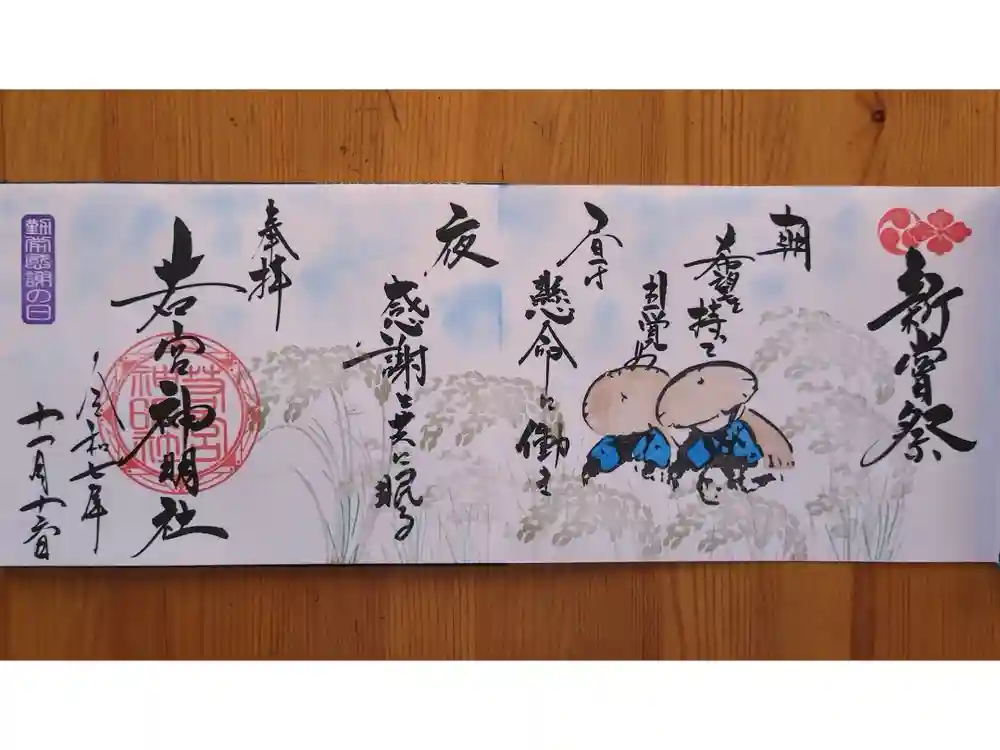 新嘗祭
朝
希望を持って
目覚め
昼
懸命に働き
夜
感謝と共に眠る
奉拝
若宮神明社
若宮神明社
令和七年
十一月十六日
勤労感謝の日